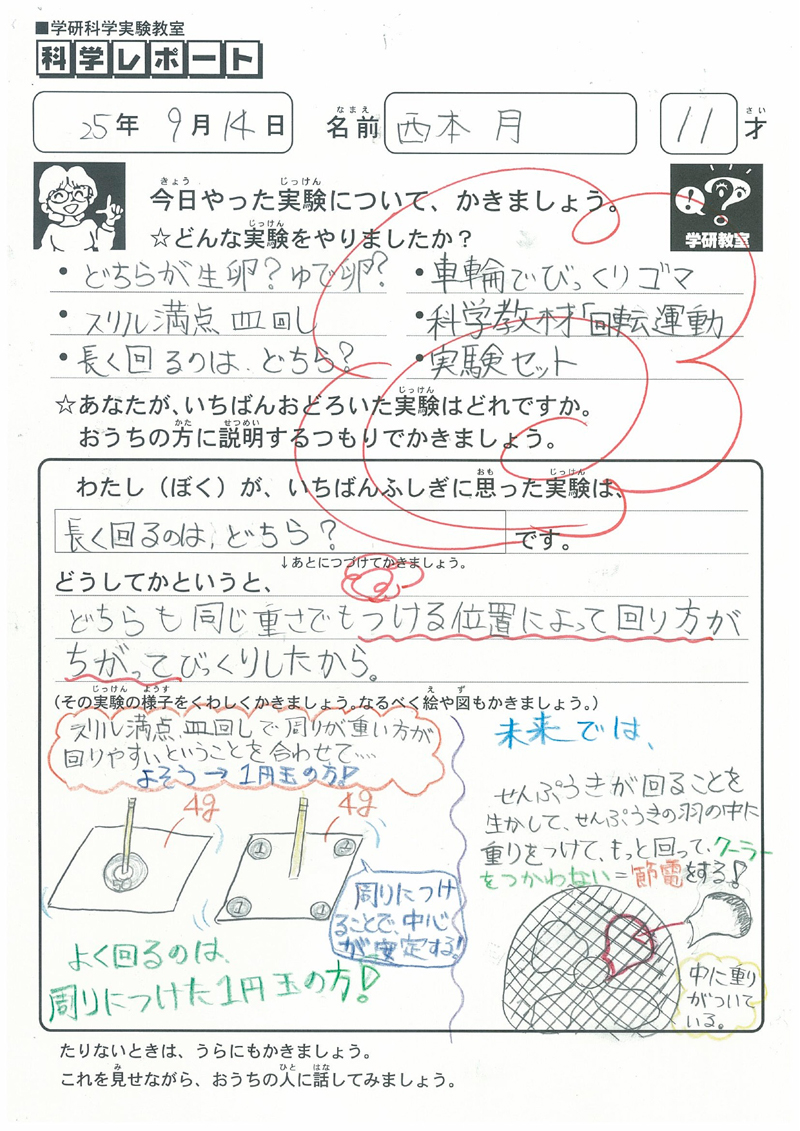 ■学研科学実験教室
科学レポート
25年 9月14日 名前 西本 月 11才
なまえ さい
きょう じっけん
今日やった実験について、かきましょう。
じっけん
☆どんな実験をやりましたか?
学研教室
・どちらが生卵?ゆで卵?
・スリル満点皿回し
・長く回るのは、どちら?
・車輪でびっくりゴマ
・科学教材「回転運動
・実験セット
じっけん
☆あなたが、いちばんおどろいた実験はどれですか。
かた せつめい
おうちの方に説明するつもりでかきましょう。
おも じっけん
わたし(ぼく)が、いちばんふしぎに思った実験は、
長く回るのは、どちら? です。
↓あとにつづけてかきましょう。
どうしてかというと、
どちらも同じ重さでもつける位置によって回り方が
ちがってびっくりしたから。
じっけん ようす え ず
(その実験の様子をくわしくかきましょう。なるべく絵や図もかきましょう。)
スリル満点皿回しで周りが重い方が
回りやすいということを合わせて‥‥
よそう→1円玉の方!
4g
4g
1
1
1
1
周りにつけ
ることで、中心
が安定する!
よく回るのは、
周りにつけた1円玉の方!
未来では、
せんぷうきが回ることを
生かして、せんぷうきの羽の中に
重りをつけて、もっと回って、クーラー
をつかわない=節電をする!
中に重り
がついて
いる。
たりないときは、うらにもかきましょう。
み ひと はな
これを見せながら、おうちの人に話してみましょう。